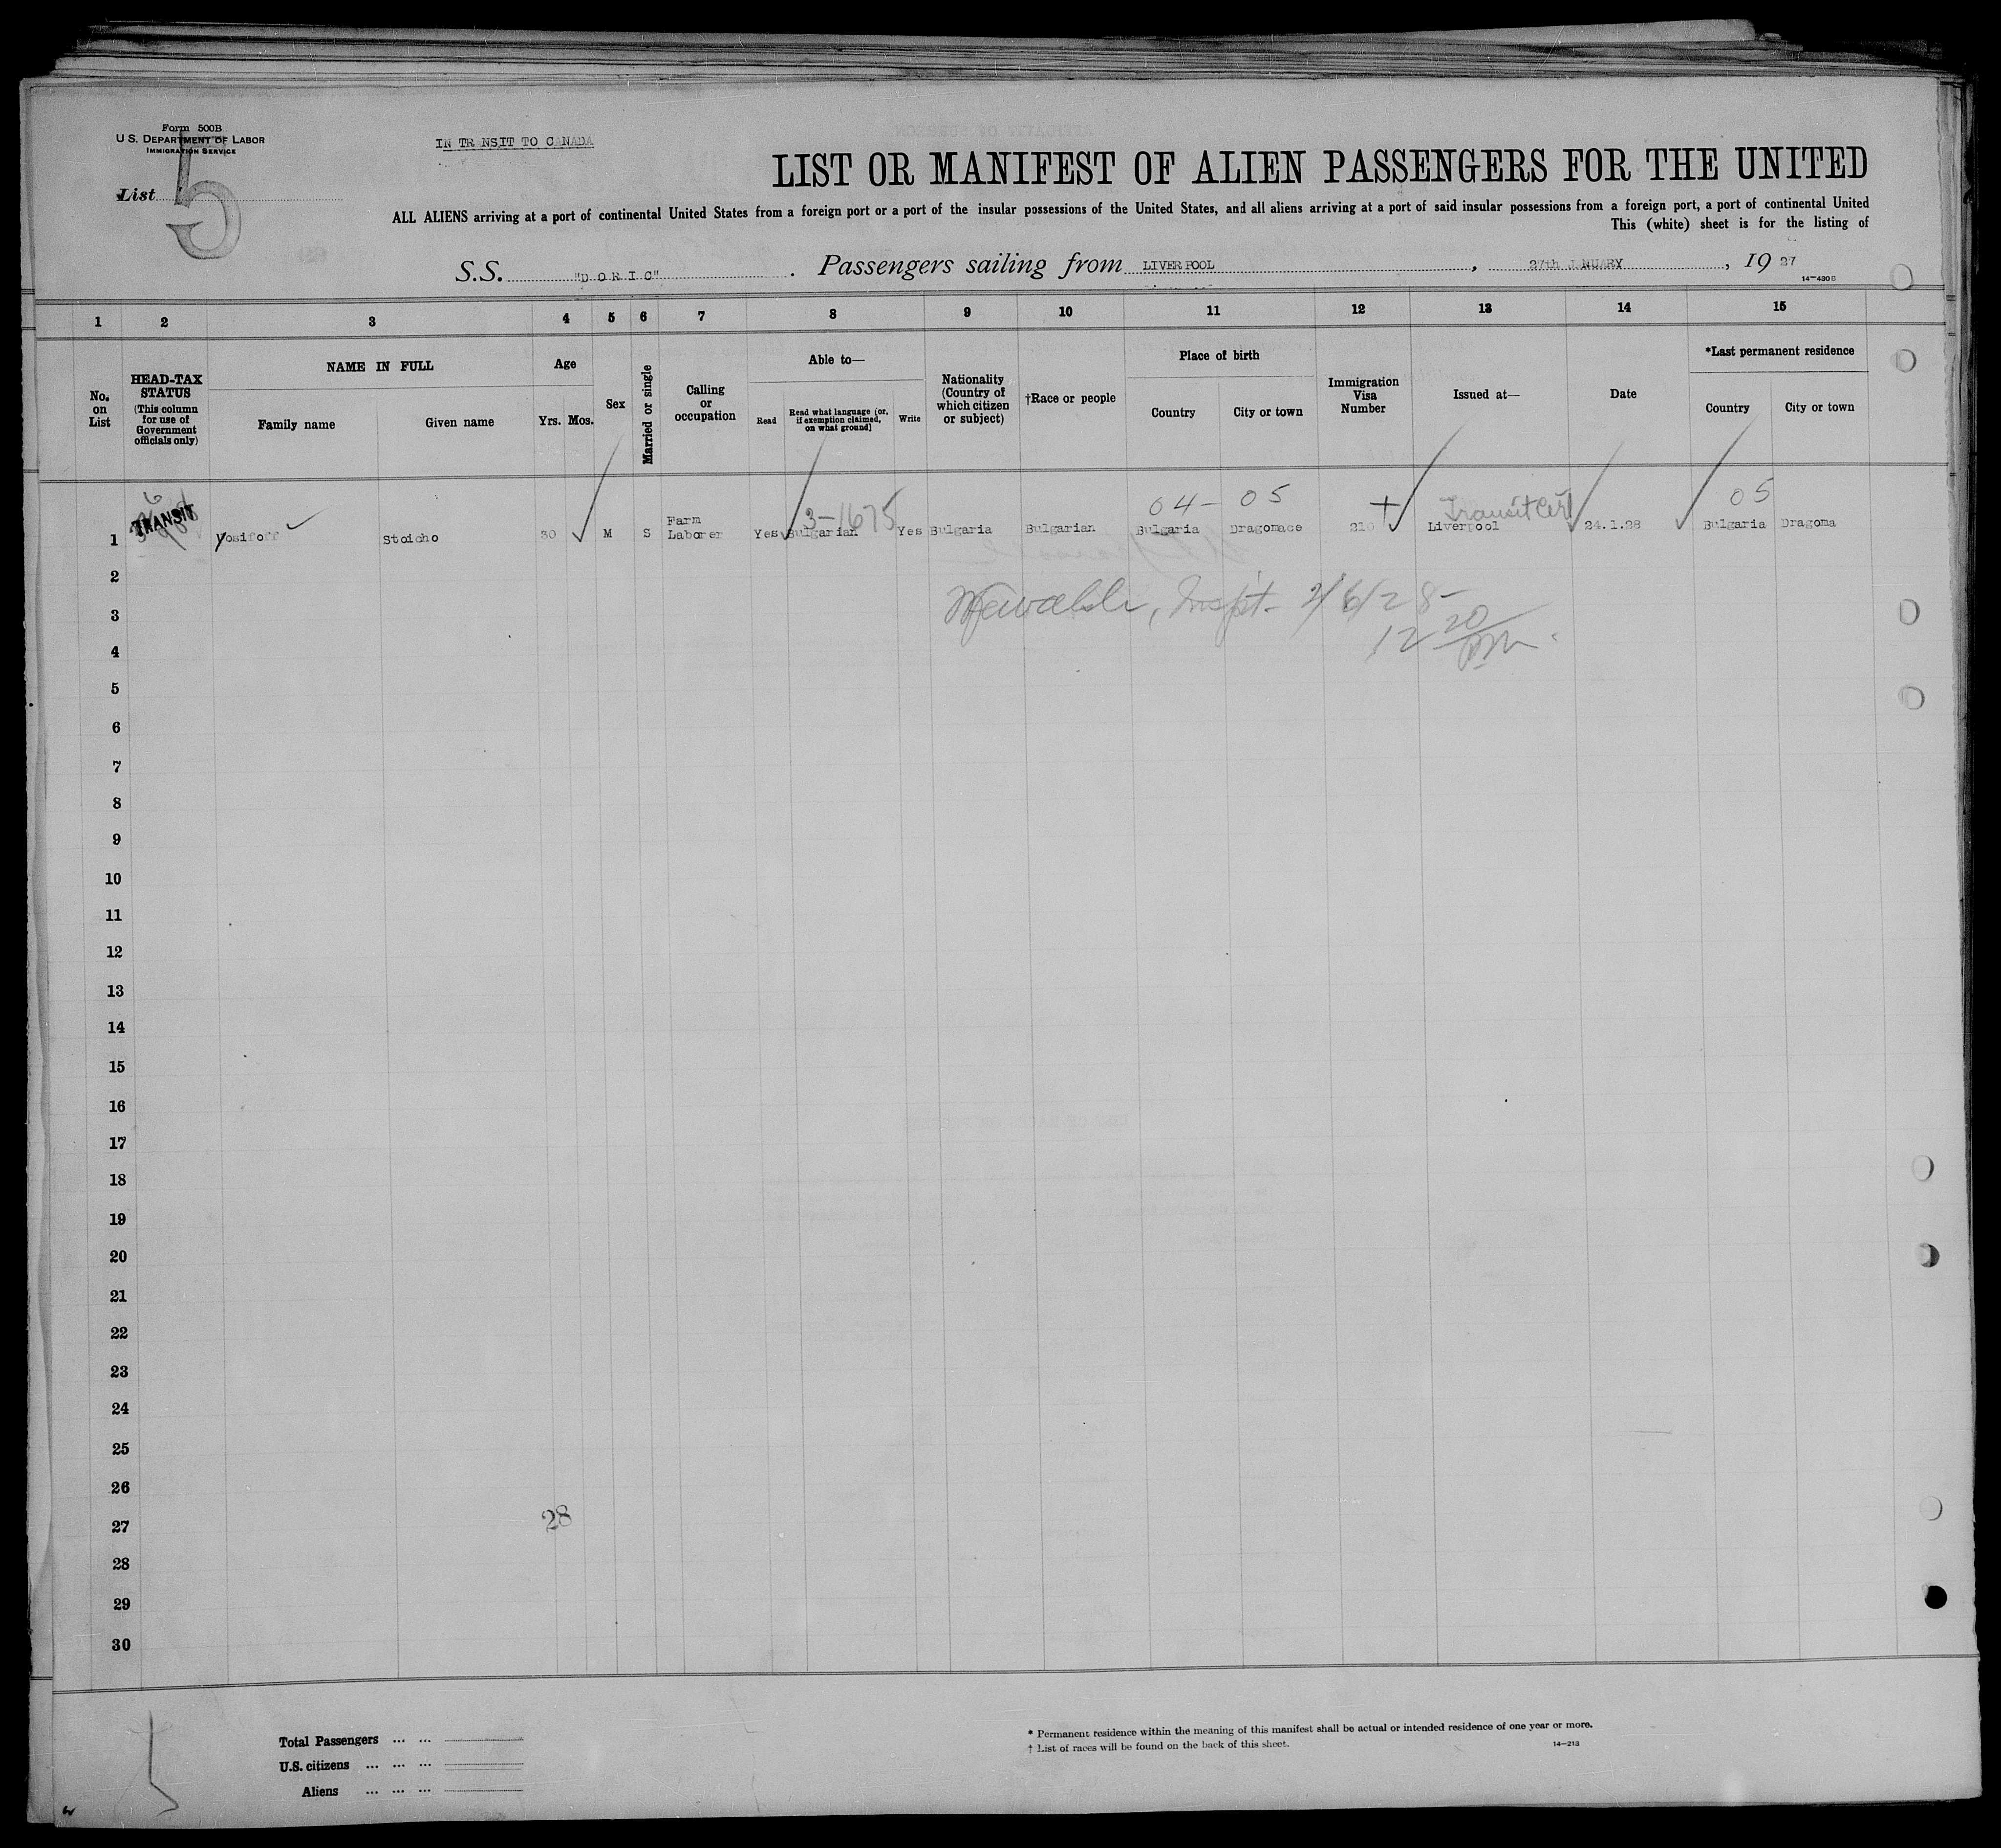 Form 500B
U. S. DEPARTMENT OF LABOR
IMMIGRATION SERVICE
IN TRANSIT TO CANADA
List 5
LIST OR MANIFEST OF ALIEN PASSENGERS FOR THE UNITED
ALL ALIENS arriving at a port of continental United States from a foreign port or a port of the insular possessions of the United States, and all aliens arriving at a port of said insular possessions from a foreign port, a port of continental United
This (white) sheet is for the listing of
S.S. "DORIC". Passengers sailing from LIVERPOOL, 27th JANUARY, 19 27
14—430B
1 2 3 4 5 6 7 8 9 10 11 12 13 14 15
No. on List
HEAD-TAX STATUS (This column for use of Government officials only)
NAME IN FULL
Family name Given name
Age
Yrs. Mos.
Sex
Married or single
Calling or occupation
Able to—
Read
Read what language [or, if exemption claimed, on what ground]
Write
Nationality (Country of which citizen or subject)
†Race or people
Place of birth
Country City or town
Immigration Visa Number
Issued at—
Date
*Last permanent residence
Country City or town
3-1675 04- 05 Transit Cert 05
1 TRANSIT Yosifoff Stoicho 30 M S Farm Laborer Yes Bulgarian Yes Bulgaria Bulgarian Bulgaria Dragomace 210 Liverpool 24.1.28 Bulgaria Dragoma
2
Inspt. 2/6/28
3
12 20 pm
4
5
6
7
8
9
10
11
12
13
14
15
16
17
18
19
20
21
22
23
24
25
26
28
27
28
29
30
Total Passengers ... ...
U.S. citizens ... ... ...
Aliens ... ... ...
* Permanent residence within the meaning of this manifest shall be actual or intended residence of one year or more.
† List of races will be found on the back of this sheet.
14—213